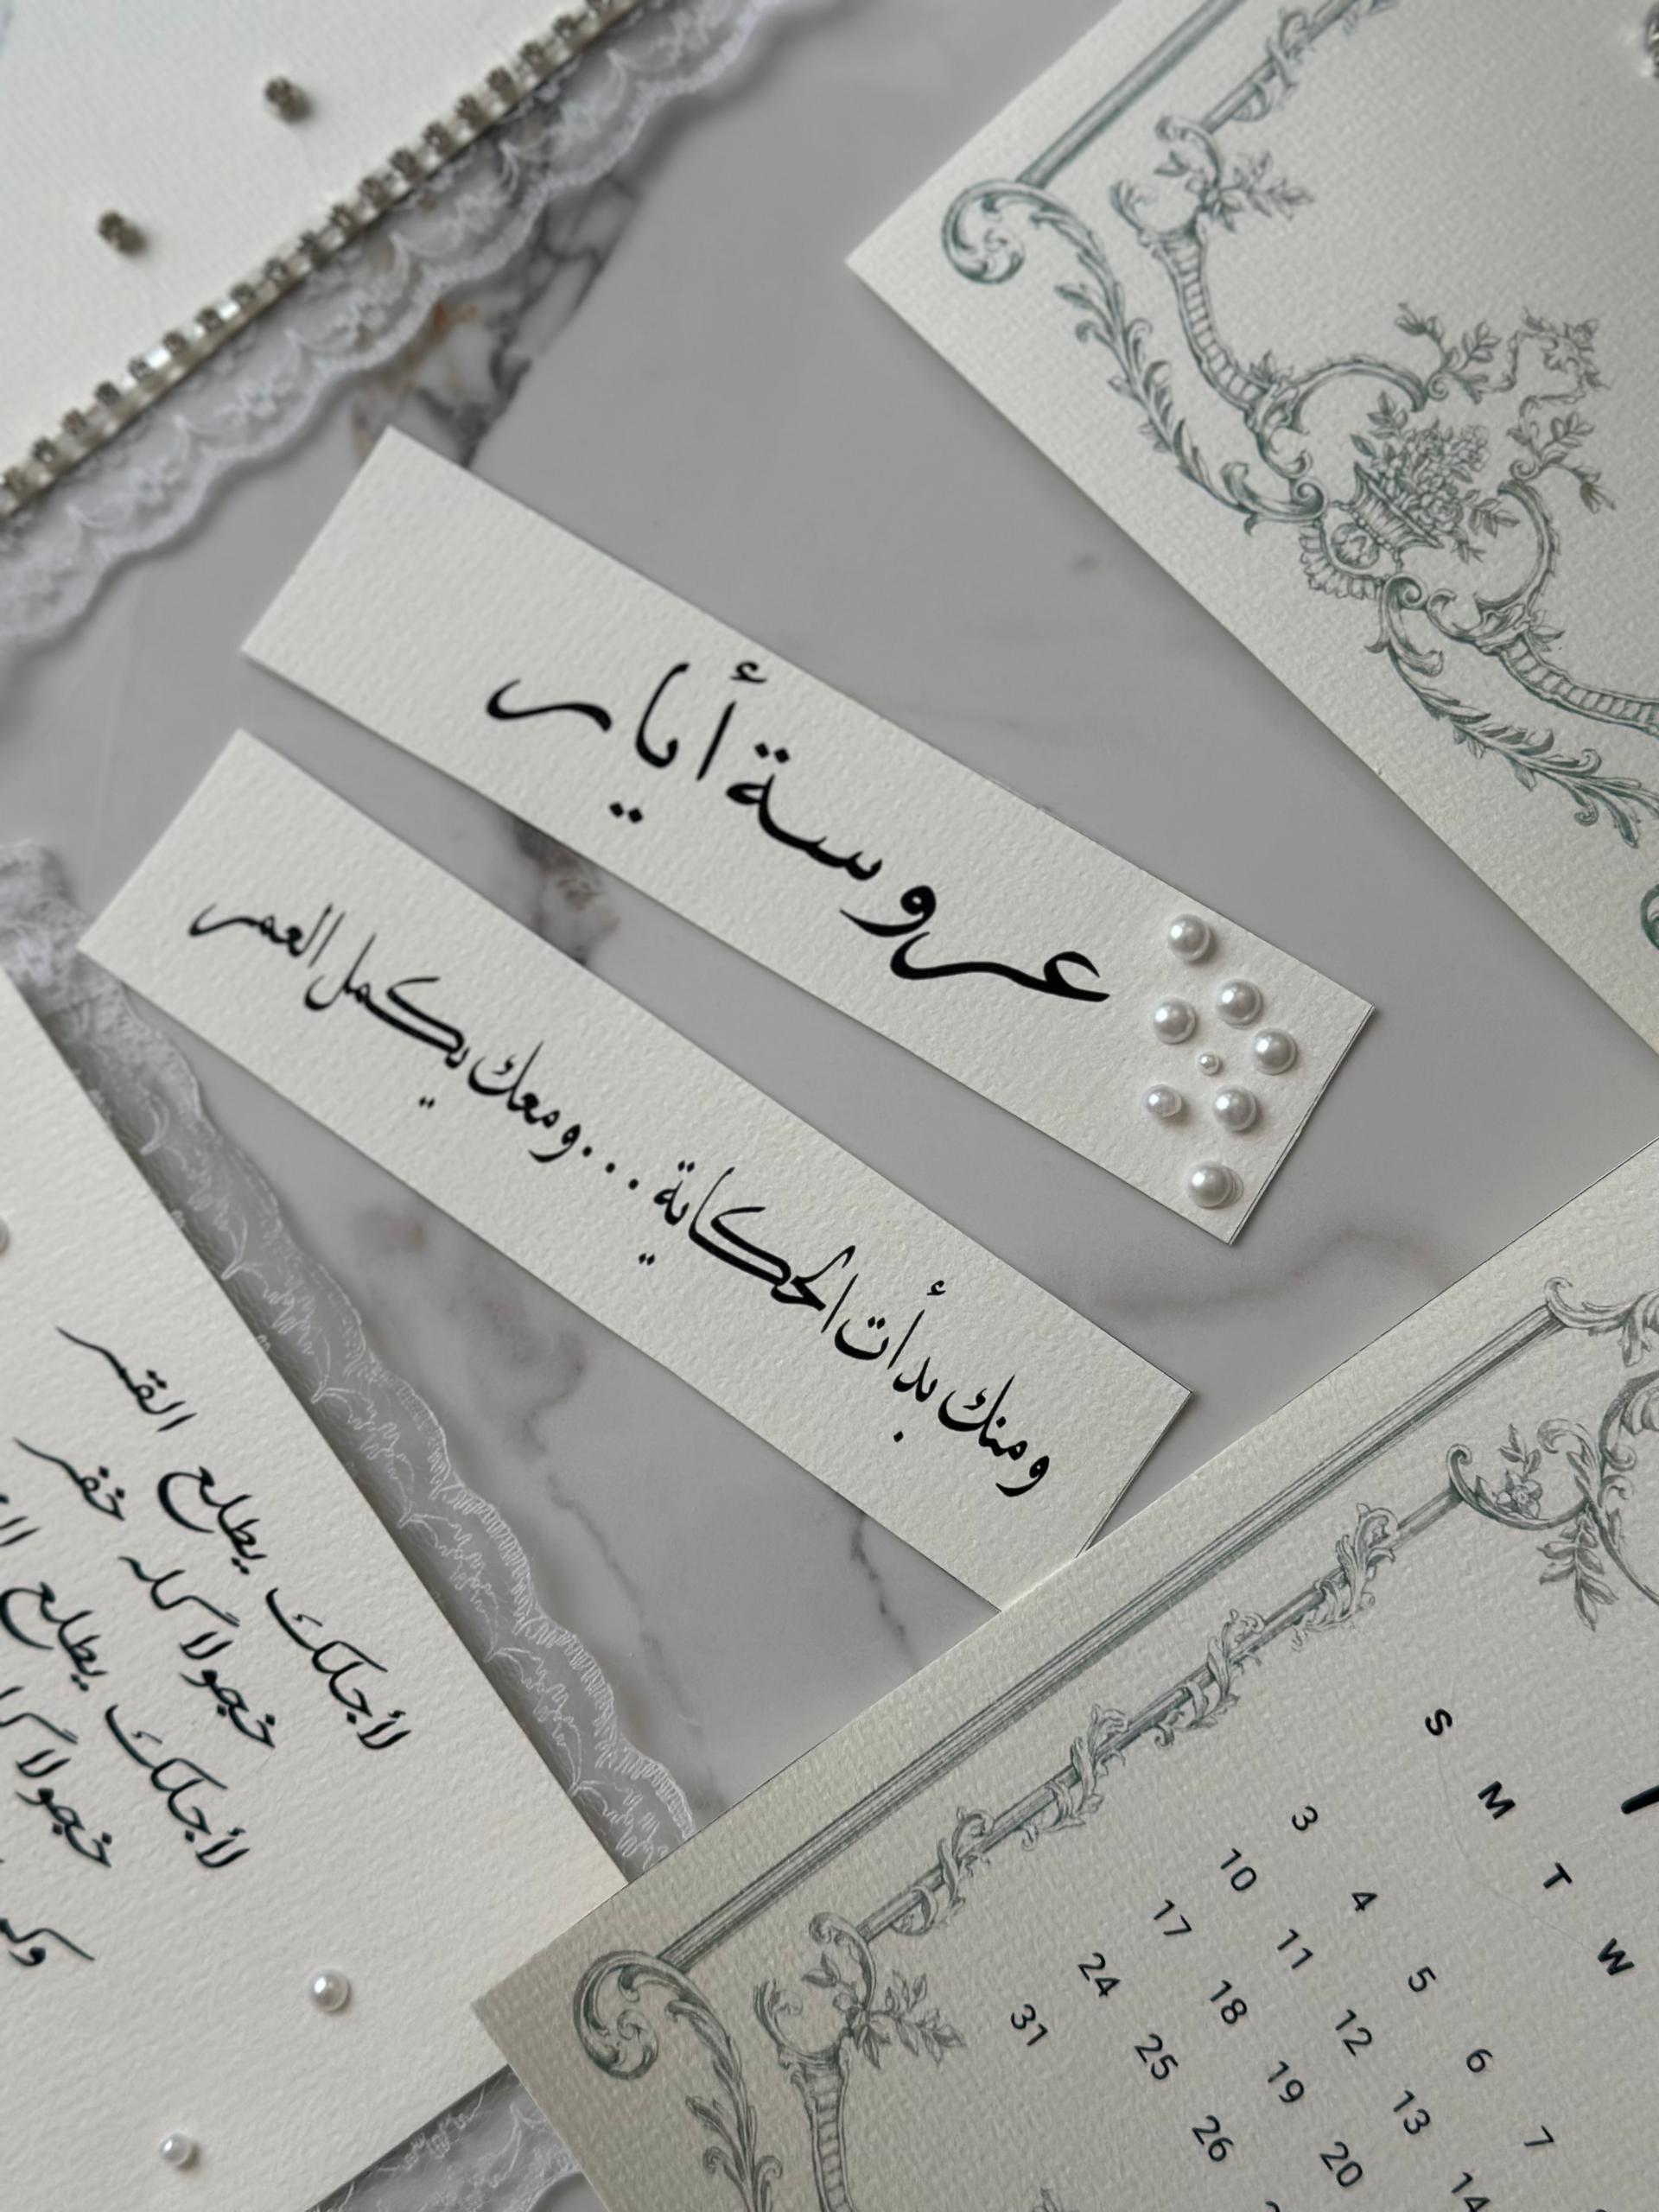 عروسة أيار
ومنك بدأت الحكاية...ومعك يكمل العمر
لأجلك يطلع القمر
خجولا كله خفر
لأجلك يطلع
خجولا
S M T W
3 4 5 6 7
10 11 12 13 14
17 18 19 20
24 25 26
31